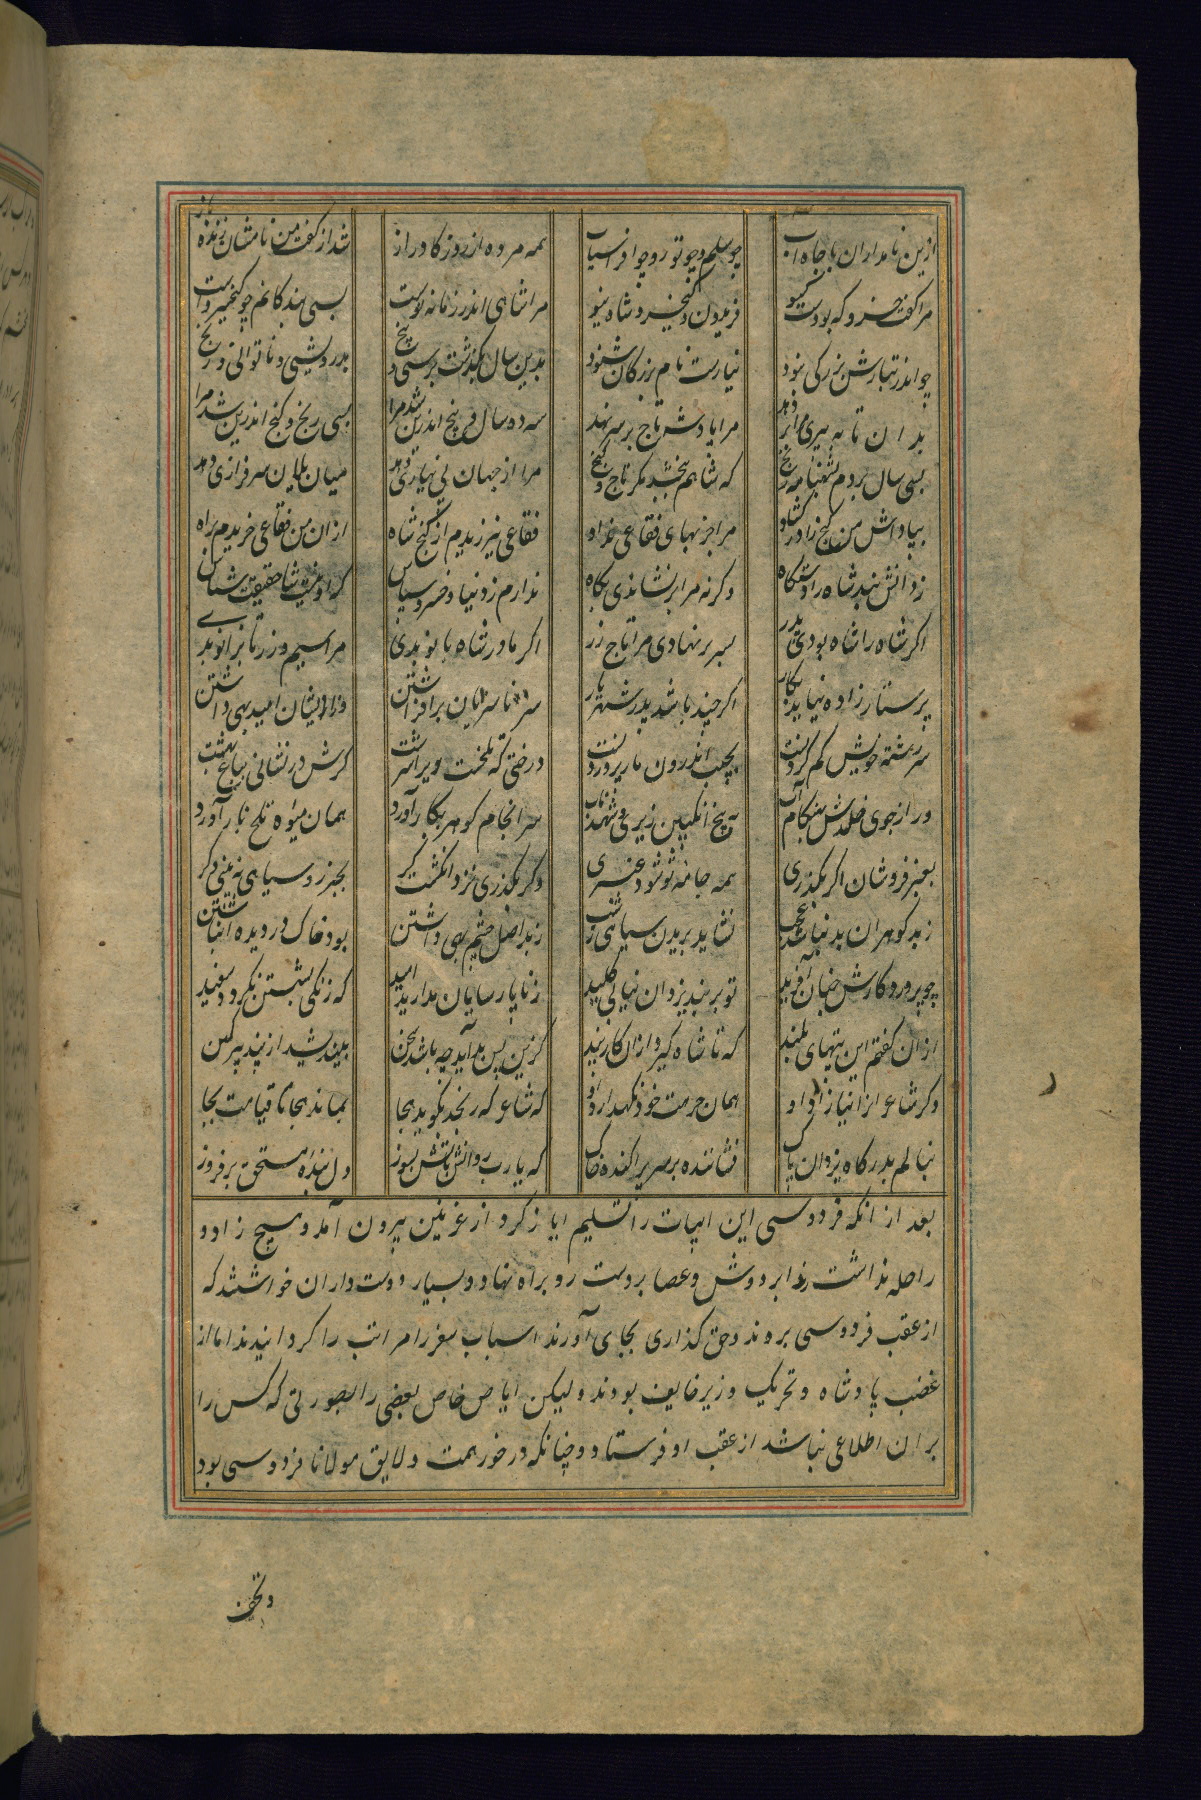 ازین نامداران با جاه و آب چو سلم و چو تور و چو افراسیاب همه مرده از روزگار دراز شد از گفت من نامشان زنده باز
مرا گفت خسرو که بودست گیو فریدون و کیخسرو شاه نیو مرا شاهی اندر زمانه نوست بسی بندگانم چو کیخسروست
چو اندر تبارش بزرگی نبود نیارست نام بزرگان شنود بدین سال بگذشت بر سی و پنج بدرویشی و ناتوانی و رنج
بدان تا به پیری مرا بر دهد مرا پادشه تاج بر سر نهد سه ده سال و پنج اندرین شد مرا بسی رنج و گنج اندرین شد مرا
بسی سال بردم بشهنامه رنج که شاهم ببخشد مکر تاج و گنج مرا از جهان بی نیازی دهد میان یلان سرفرازی دهد
بپاداش من گنج را در گشاد مرا جز بهای فقاعی نداد فقاعی نیرزیدم از گنج شاه از ان من فقاعی خریدم براه
ز دانش نبد شاه را دستگاه وگرنه مرا برنشاندی بگاه ندارم ز دنیا و خسرو سپاس که او نیست شاه حقیقت شناس
اگر شاه را شاه بودی پدر بسر بر نهادی مرا تاج زر اگر مادر شاه بانو بدی مرا سیم و زر تا بزانو بدی
پرستار زاده نیاید بکار اگر چند باشد پدر شهریار سر ناسزایان برافراشتن وز ایشان امید بهی داشتن
سر رشته خویش گم کردنست بجیب اندرون مار پروردنست درختی که تلخست ویرا سرشت گرش در نشانی بباغ بهشت
ور از جوی خلدش بهنگام آب به بیخ انگبین ریزی و شهد ناب سر انجام گوهر بکار آورد همان میوه تلخ بار آورد
بعنبر فروشان اگر بگذری همه جامه تو شود عنبری وگر بگذری نزد انگشت گر بجز رو سیاهی نه بینی دگر
ز بد گوهران بد نباشد عجب نشاید بریدن سیاهی ز شب ز بد اصل چشم بهی داشتن بود خاک در دیده انباشتن
چو پروردگارش چنان آفرید تو بر بند یزدان نیابی کلید ز ناپارسایان مدارید امید که زنگی بشستن نگردد سفید
از ان گفتم این بیتهای بلند که تا شاه گیرد از ان کار پند کزین پس بداند چه باشد سخن بیندیشد از پند پیر کهن
دگر شاعرانرا نیازارد او همان حرمت خود نگهدارد او که شاعر که رنجد بگوید هجا بماند هجا تا قیامت بجا
بنالم بدرگاه یزدان پاک فشاننده بر سر پراکنده خاک که یارب روانش بآتش بسوز دل بنده مستحق برفروز
بعد از انکه فردوسی این ابیات را تسلیم ایاز کرد از غزنین بیرون آمد و هیچ زاد و
راحله نداشت ردا بر دوش و عصا بر دست رو براه نهاد و بسیار دوست داران خواستند که
از عقب فردوسی بروند و حق گذاری بجای آورند اسباب سفر را مراتب را گردانیدند اما از
غضب پادشاه و تحریک وزیر خایف بودند ولیکن ایاص خاص بعضی را بصورتی که کس را
بر ان اطلاعی نباشد از عقب او فرستاد و چنانکه در خور همت و لایق مولانا فردوسی بود
و تحف